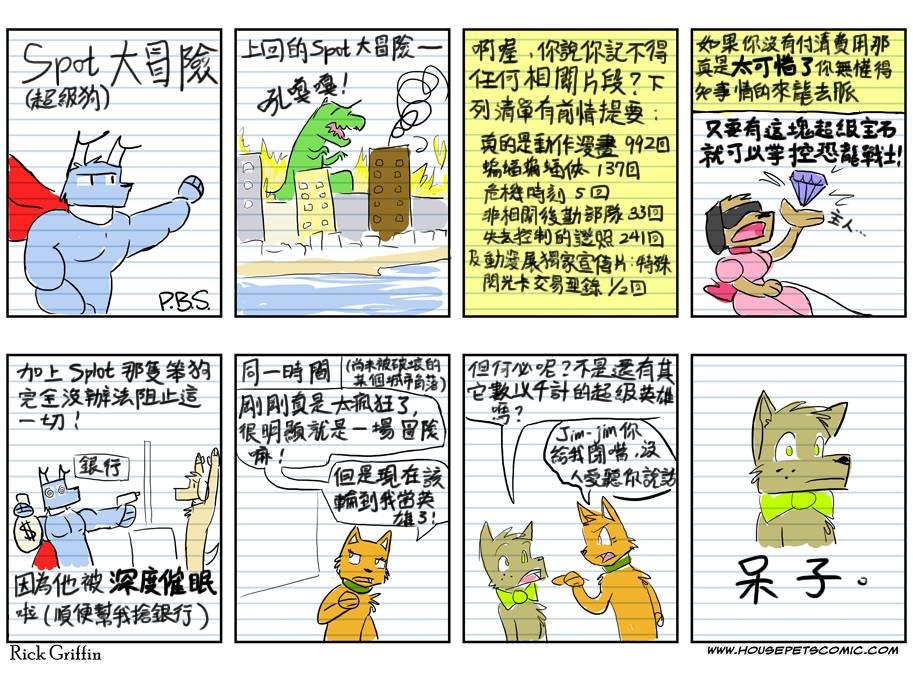 Spot 大冒險
(超級狗)
P.B.S.
上回的Spot 大冒險—
吼嘎嘎!
啊喔,你說你記不得
任何相關片段?下
列清單有前情提要:
真的是動作漫畫 992回
蝙蝠蝙蝠俠 137回
危機時刻 5回
非相關後勤部隊 33回
失去控制的護照 241回
及動漫展獨家宣傳片:特殊
閃光卡交易目錄 1/2回
如果你沒有付清費用那
真是太可惜了你無權得
知事情的來龍去脈
只要有這塊超級宝石
就可以掌控恐龍戰士!
主人...
加上 Spot 那隻笨狗
完全沒辦法阻止這
一切!
銀行
$
因為他被 深度催眠
啦 (順便幫我搶銀行)
同一時間
(尚未被破壞的
某個城市角落)
剛剛真是太瘋狂了,
很明顯就是一場冒險
嘛!
但是現在該
輪到我當英
雄了!
但何必呢?不是還有其
它數以千計的超級英雄
嗎?
Jim-jim你
給我閉嘴,沒
人愛聽你說話
呆子。
Rick Griffin
WWW.HOUSEPETSCOMIC.COM